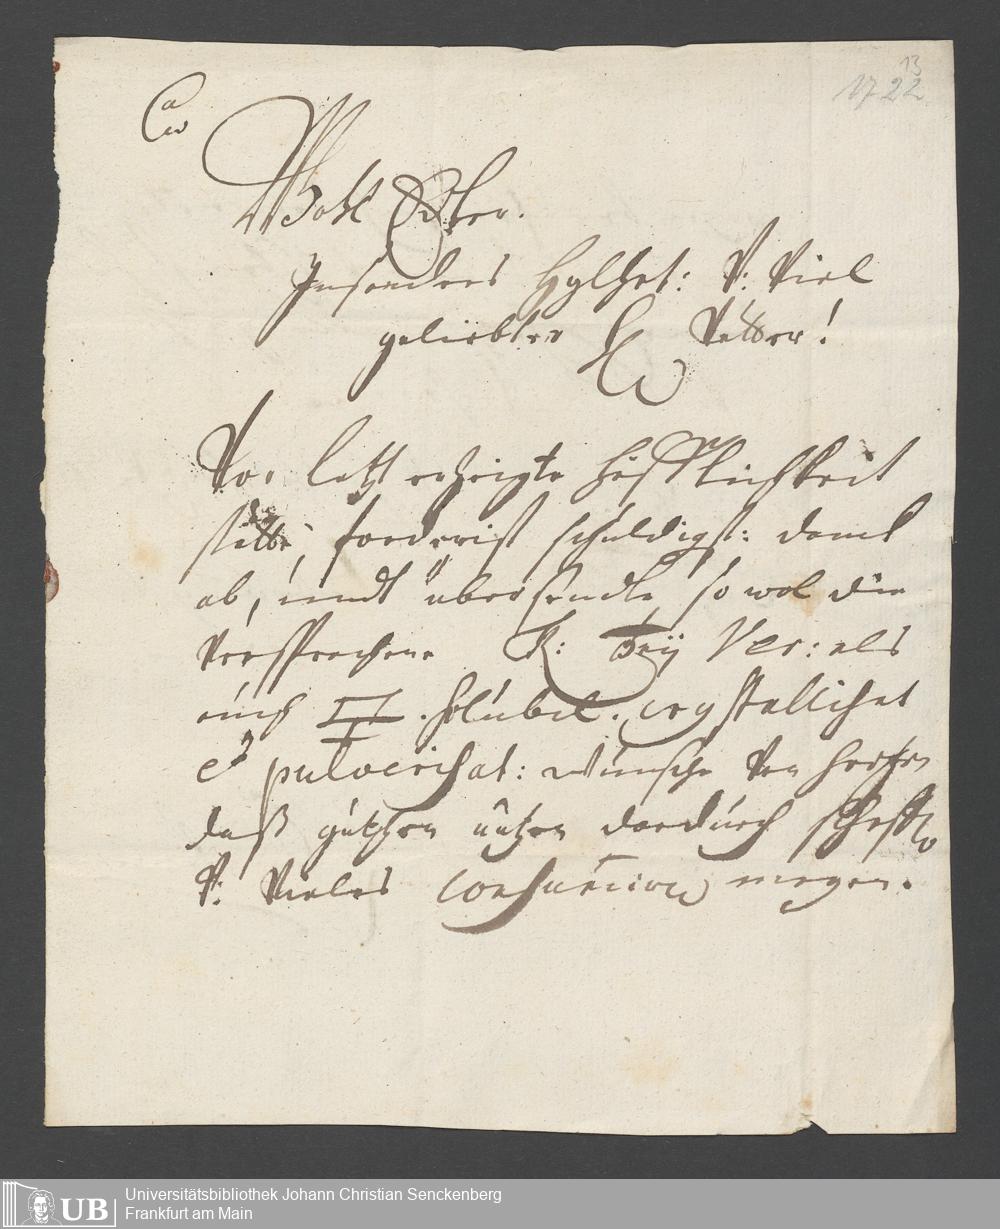 13
1722
Wohl Edler.
Insonders Hgl: V: Viel
geliebter H Vetter!
Vor letzt erzeigte Höfflichkeit
statte forderist schuldigst: danck
ab, undt übersende so wol die
versprochene als
auch solubil. crystallisat
et pulverisat: wünsche von Hertzen
daß guthen nutzen dardurch schaffen
V: Vieles mögen.
Universitätsbibliothek Johann Christian Senckenberg
Frankfurt am Main
UB